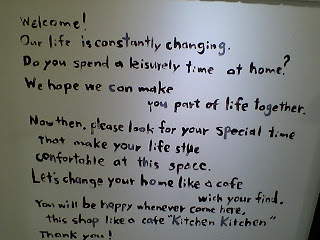 Welcome!
Our life is constantly changing.
Do you spend a leisurely time at home?
We hope we can make
you part of life together.
Now then, please look for your special time
that make your life style
confortable at this space.
Let's change your home like a cafe
wich your find.
You will be happy whenever come here,
this shop like a cafe "Kitchen Kitchen"
Thank you!